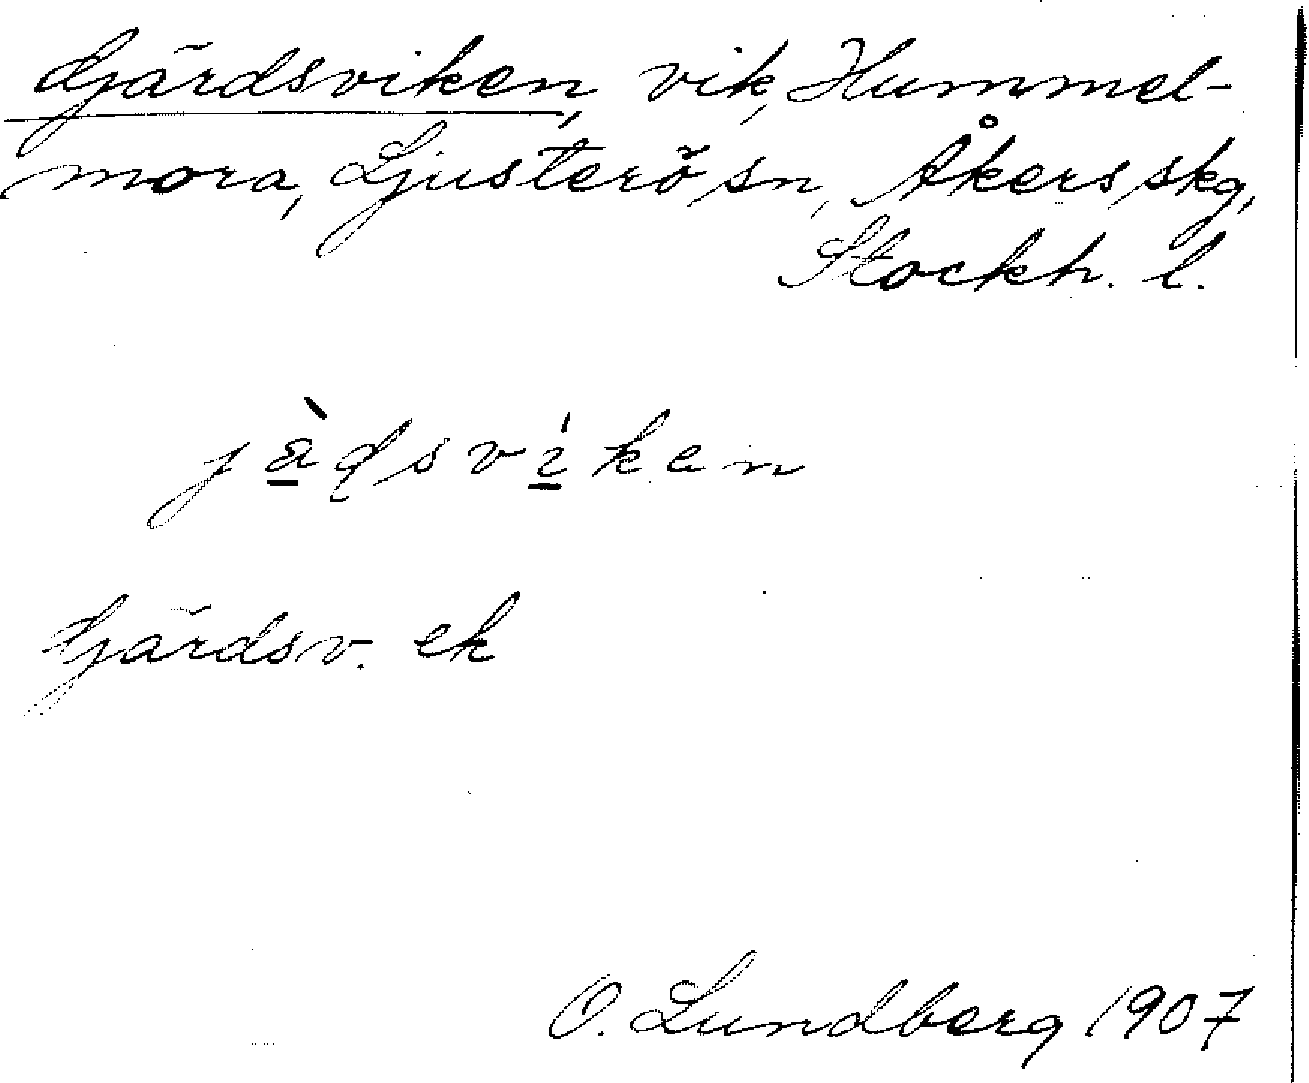 Gjärdsviken, vik, Hummel-
mora, Ljusterö sn, Åkers skg,
Stockh. l.
jä̀ḍsvíken
Gjärdsv. ek
O. Lundberg 1907